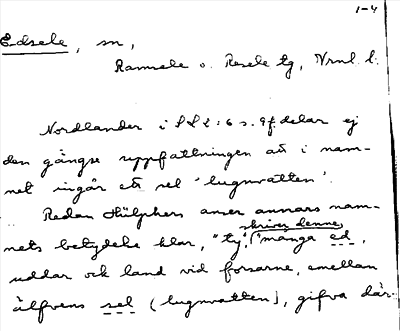 1-4
Edsele, sn,
Ramsele o. Resele tg, Vrnl. l.
Nordlander i SLÅ: 6 s. 9 f. delar ej
den gängse uppfattningen att i nam-
net ingår ett sel 'lugnvatten'.
Redan Hülphers anser annars nam-
nets betydelse klar, "ty",
skriver denne,
"många ed,
uddar och land vid forsarne, emellan
älfvens sel (lugnvatten), gifva där-